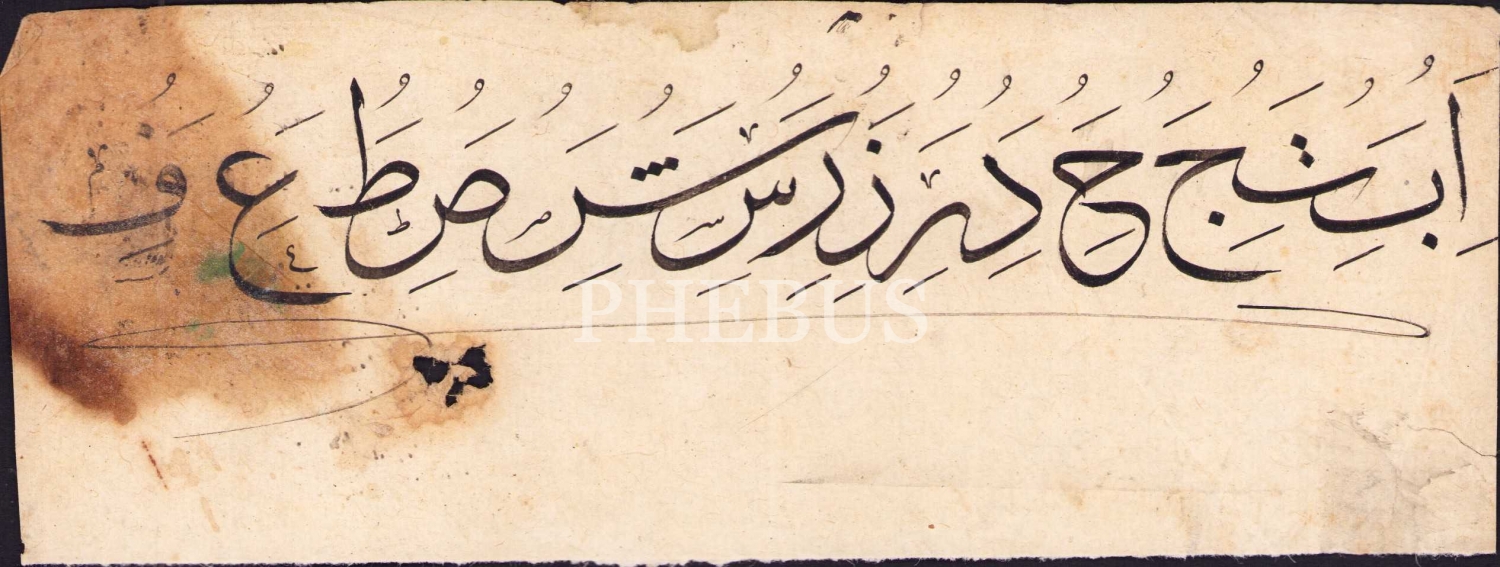 اَُِ بَُِ تَُِ جَُِ حَُِ دَُِ رَُِ زَُِ سَُِ سَُِ شَُِ صَُِ طَُِ عَُِ فَُ
PHEBUS